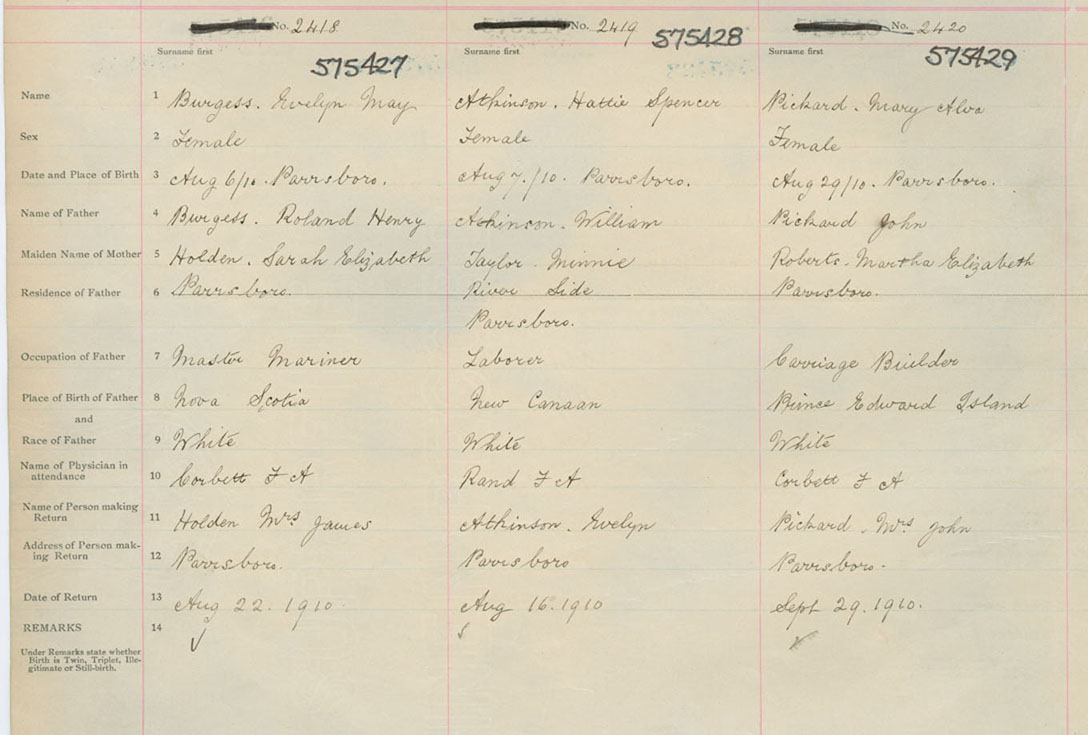 No. 2418 No. 2419 No. 2420
Surname first Surname first Surname first
575427 575428 575429
Name 1 Burgess. Evelyn May Atkinson. Hattie Spencer Pickard. Mary Alva
Sex 2 Female Female Female
Date and Place of Birth 3 Aug 6/10. Parrsboro. Aug 7./10. Parrsboro. Aug 29/10. Parrsboro.
Name of Father 4 Burgess. Roland Henry Atkinson. William Pickard John
Maiden Name of Mother 5 Holden. Sarah Elizabeth Taylor. Minnie Roberts. Martha Elizabeth
Residence of Father 6 Parrsboro. River Side Parrsboro.
Parrsboro.
Occupation of Father 7 Master Mariner Laborer Carriage Builder
Place of Birth of Father 8 Nova Scotia New Canaan Prince Edward Island
and
Race of Father 9 White White White
Name of Physician in
attendance 10 Corbett F A Rand F A Corbett F A
Name of Person making
Return 11 Holden Mrs James Atkinson. Evelyn Pickard. Mrs John
Address of Person mak-
ing Return 12 Parrsboro. Parrsboro Parrsboro.
Date of Return 13 Aug 22. 1910. Aug 16. 1910 Sept 29. 1910.
REMARKS 14
Under Remarks state whether
Birth is Twin, Triplet, Ille-
gitimate or Still-birth.